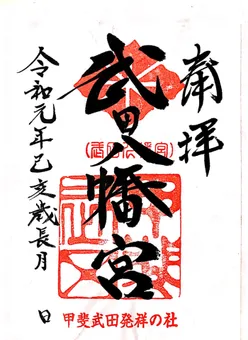 奉拝
武田八幡宮
令和元年己亥歳長月 日
甲斐武田発祥の社